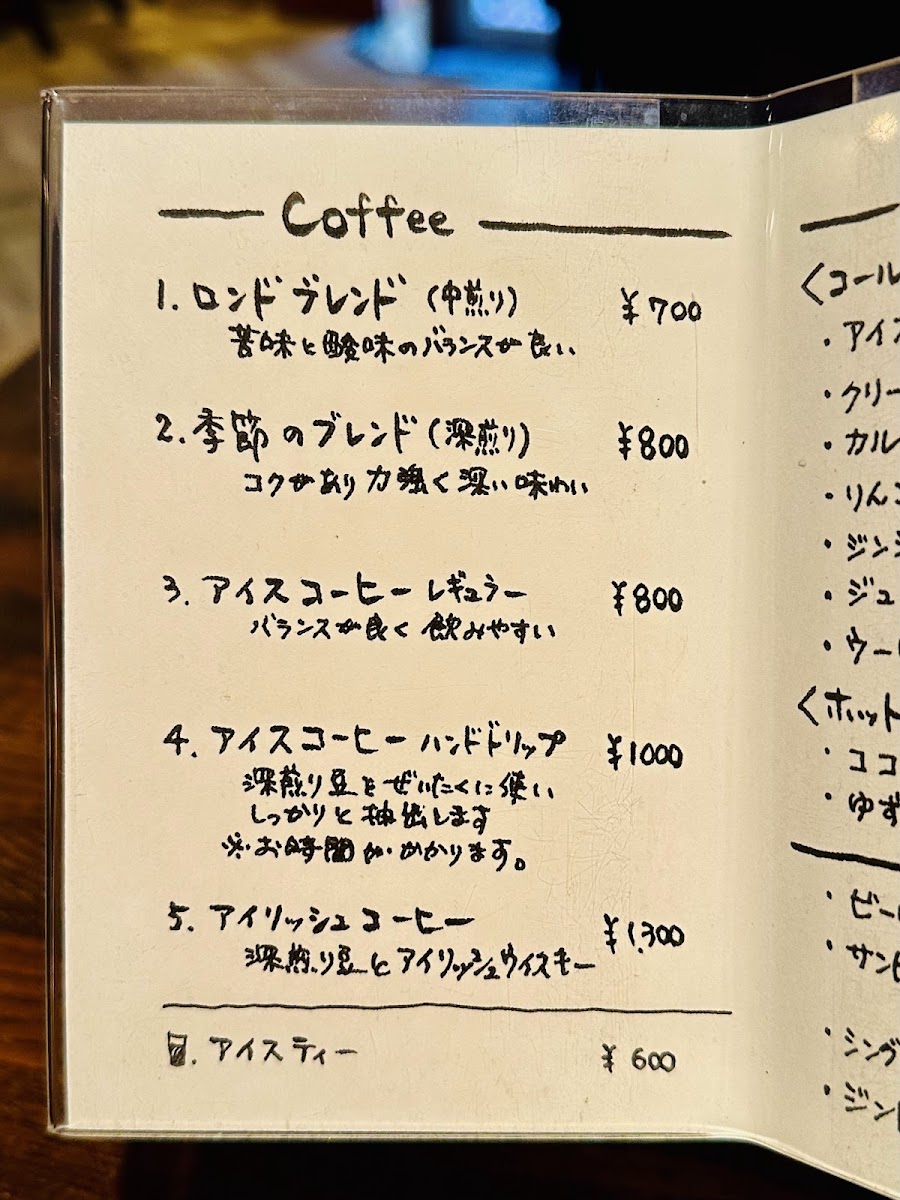 Coffee
1. ロンドブレンド (中煎り) ¥700
苦味と酸味のバランスが良い
2. 季節のブレンド (深煎り) ¥800
コクがあり力強く深い味わい
3. アイスコーヒー レギュラー ¥800
バランスが良く飲みやすい
4. アイスコーヒー ハンドドリップ ¥1000
深煎り豆をぜいたくに使い
しっかりと抽出します
※お時間がかかります。
5. アイリッシュコーヒー ¥1,300
深煎り豆とアイリッシュウイスキー
アイスティー ¥600
<コール
・アイス
・クリー
・カル
・りんご
・ジンジ
・ジュ
・ウー
<ホット
・ココ
・ゆず
・ビー
・サン
・シング
・ジン